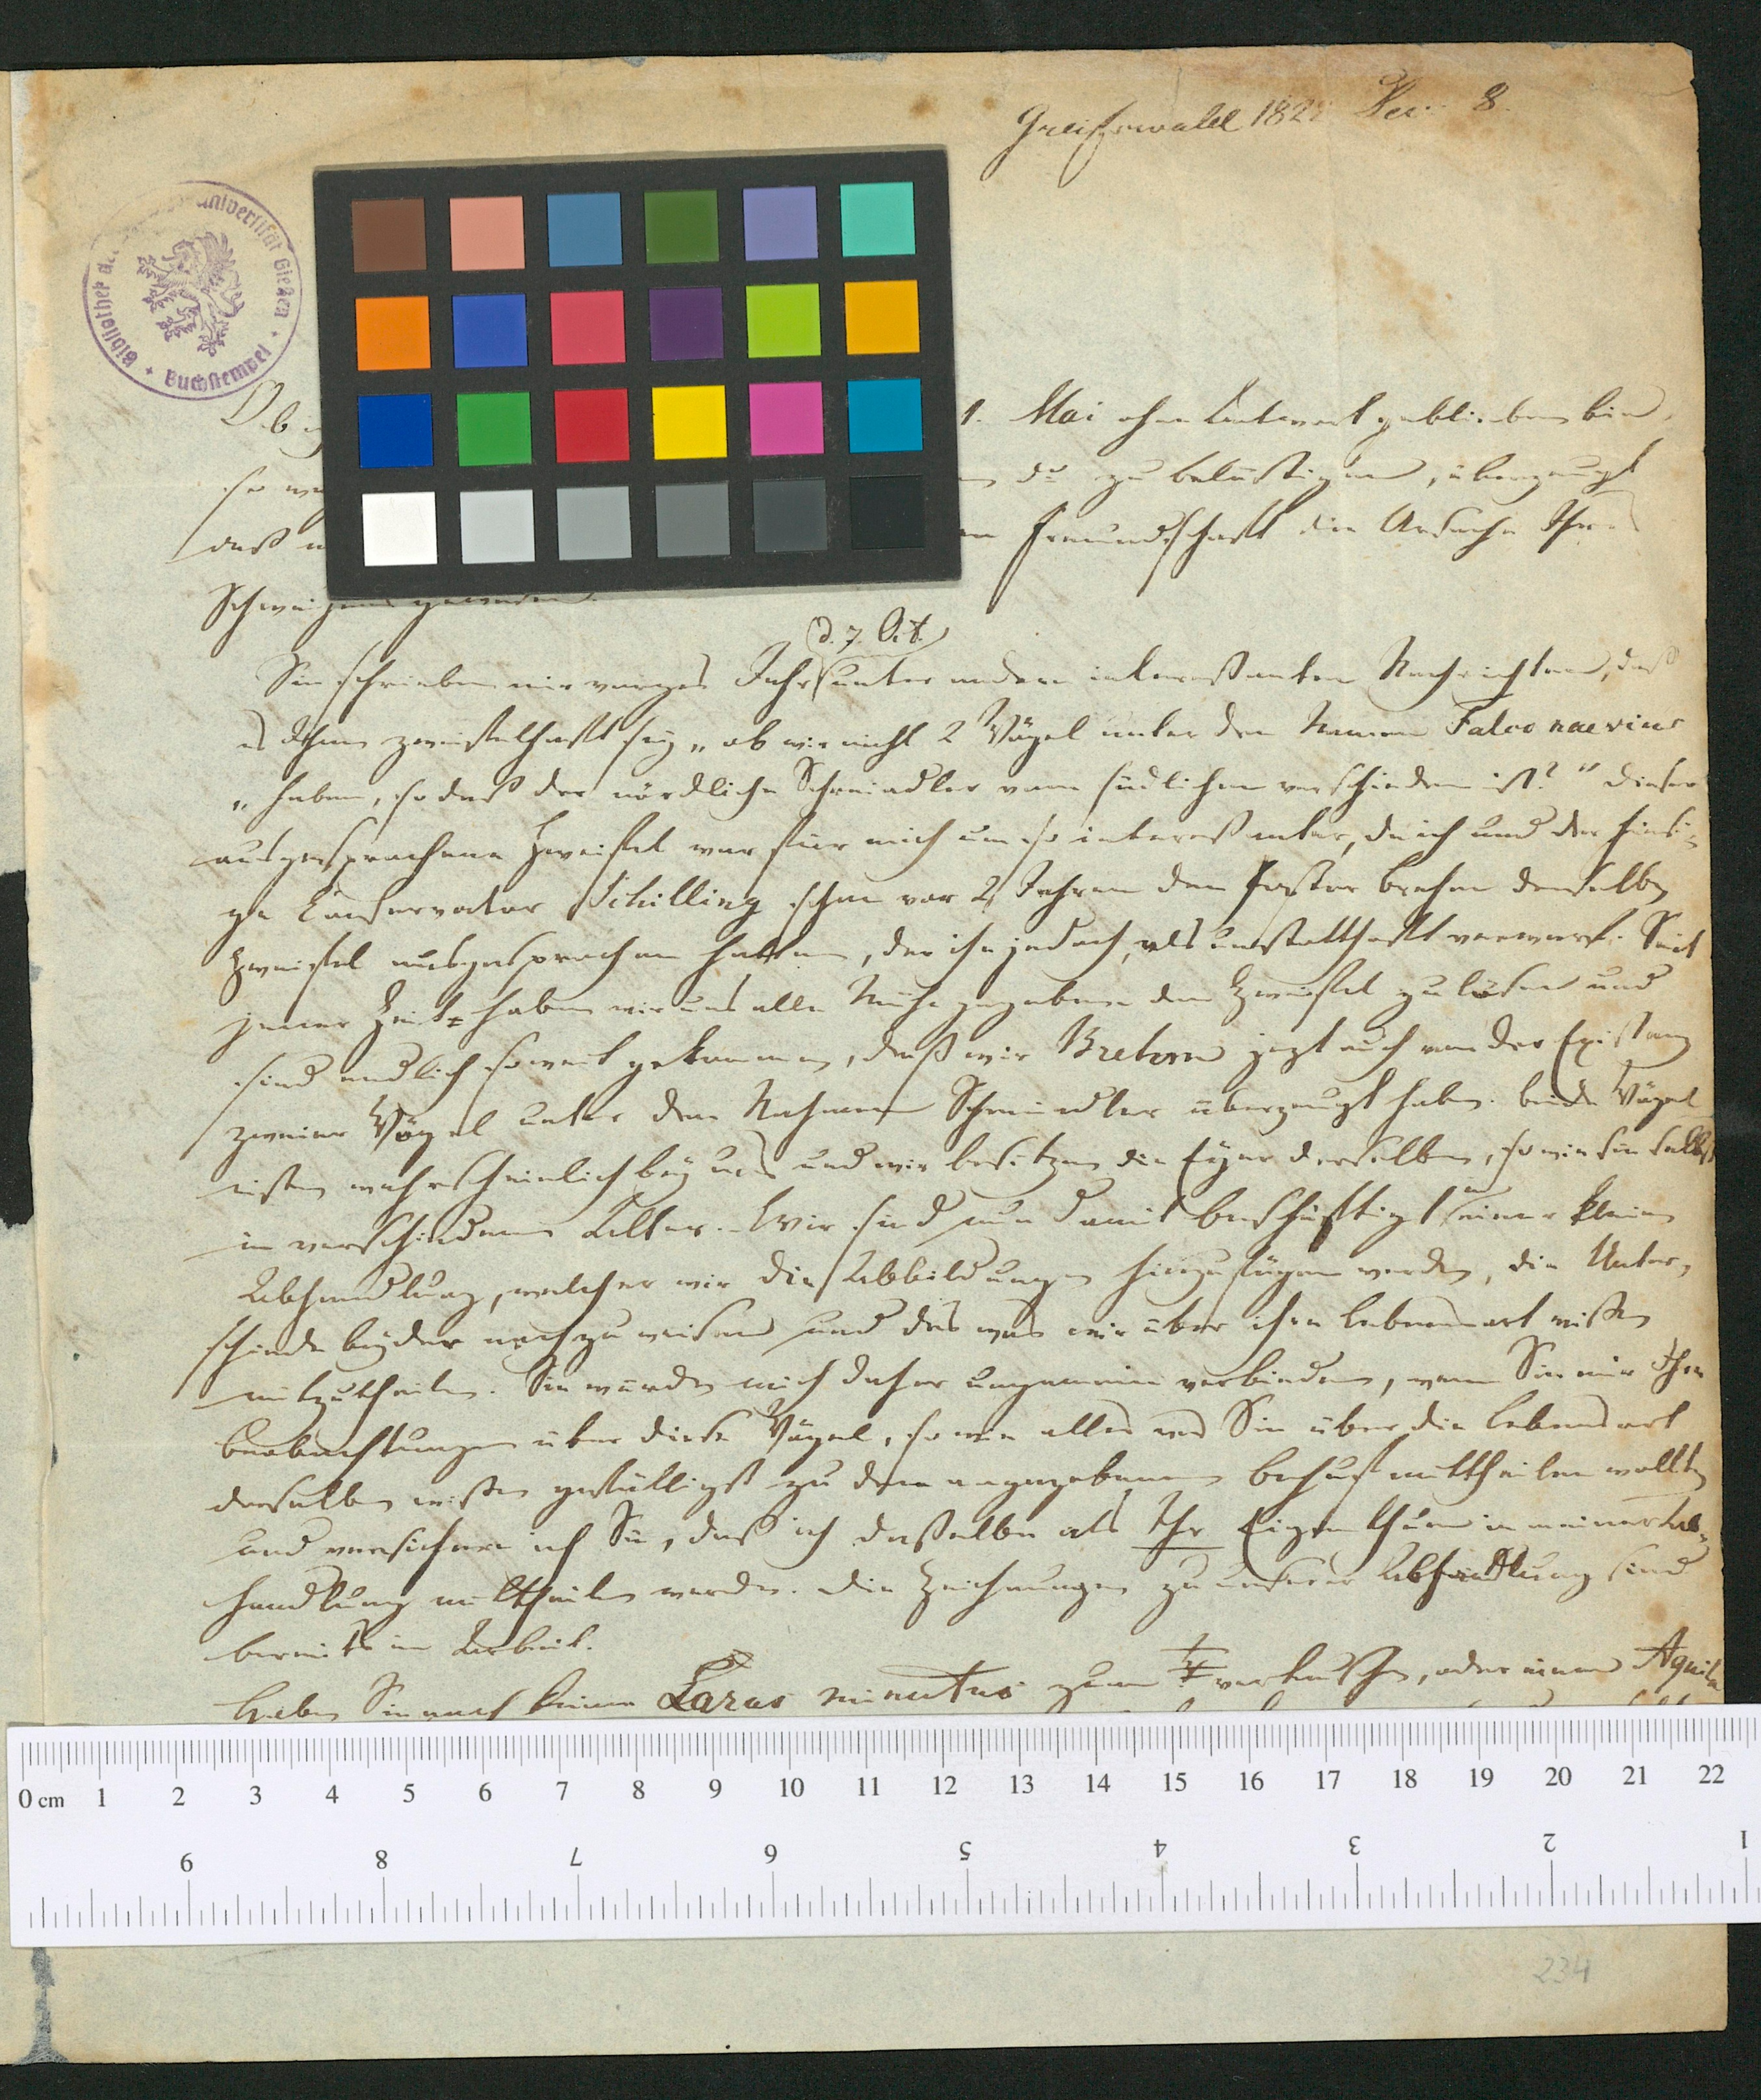 Greifswald 182 8.
Bibliothek der Universität Gießen · Buchstempel
Ob 1. Mai ohne Antwort geblieben bin,
so zu belästigen, überzeugt
daß Freundschaft die Ursache Ihres
Schweigens gewesen.
(d. 7 Oct.)
Sie schrieben mir voriges Jahr unter andern interessanten Nachrichten, daß
es Ihnen zweifelhaft sey „ob wir nicht 2 Vögel unter dem Namen Falco naevius
„haben, so daß der nördliche Schreiadler vom südlichen verschieden ist?“ Dieser
ausgesprochene Zweifel war für mich um so interessanter, da ich und der hiesi-
ge Conservator Schilling schon vor 2 Jahren dem Pastor Brehm denselben
Zweifel ausgesprochen hatten, der ihn jedoch, als unstatthaft verwarf. Seit
jener Zeit haben wir uns alle Mühe gegeben den Zweifel zu lösen und
sind endlich soweit gekommen, daß wir Brehm jezt auch von der Existenz
zweier Vögel unter dem Nahmen Schreiadler überzeugt haben. beide Vögel
nisten wahrscheinlich bey uns und wir besitzen die Eyer derselben, so wie sie selbst
in verschiedenem Alter. Wir sind nun damit beschäftigt in einer kleinen
Abhandlung, welcher wir die Abbildungen hinzufügen werden, die Unter-
schiede beyder nachzuweisen und das was wir über ihre Lebensart wissen
mitzutheilen. Sie würden mich daher ungemein verbinden, wenn Sie mir Ihre
Beobachtungen über diese Vögel, so wie alles was Sie über die Lebensart
derselben wissen gefälligst zu dem angegebenen Behuf mittheilen wollten
und versichere ich Sie, daß ich dasselbe als Ihr Eigenthum in meiner Ab-
handlung mittheilen werde. Die Zeichnungen zu unserer Abhandlung sind
bereits in Arbeit.
Haben Sie noch keinen Larus minutus zum vertauschen, oder einen Aquila
0 cm 1 2 3 4 5 6 7 8 9 10 11 12 13 14 15 16 17 18 19 20 21 22
9 8 7 6 5 4 3 2 1
234